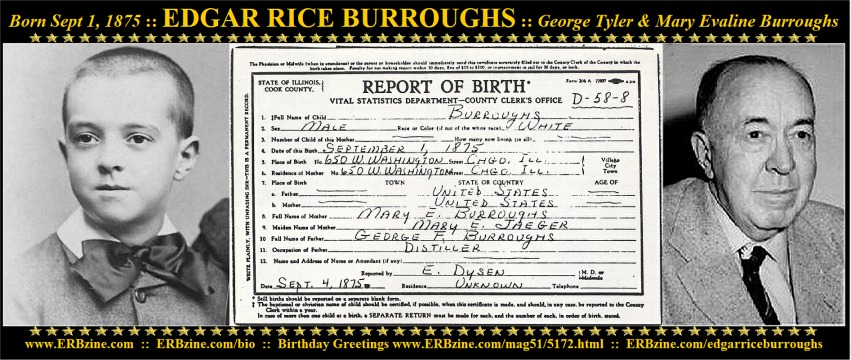 Born Sept 1, 1875 :: EDGAR RICE BURROUGHS :: George Tyler & Mary Evaline Burroughs
The Physician or Midwife (when in attendance) or the parent or householder should immediately send this certificate accurately filled out to the County Clerk of the County in which the
birth takes place. Penalty for not making report within 30 days, fine of $10 to $100, or imprisonment in jail for 30 days, or both.
STATE OF ILLINOIS,
COOK COUNTY,
REPORT OF BIRTH*
Form 206 A
VITAL STATISTICS DEPARTMENT—COUNTY CLERK'S OFFICE
D-58-8
1. ‡Full Name of Child BURROUGHS
2. Sex MALE Race or Color (if not of the white race) WHITE
3. Number of Child of this Mother How many now living (in all)
4. Date of this Birth SEPTEMBER 1, 1875
5. Place of Birth No. 650 W. WASHINGTON Street CHGO. ILL.
6. Residence of Mother No. 650 W. WASHINGTON Street CHGO. ILL.
Village
City
Town
7. Place of Birth TOWN STATE OR COUNTRY AGE OF
a. Father UNITED STATES
b. Mother UNITED STATES
8. Full Name of Mother MARY E. BURROUGHS
9. Maiden Name of Mother MARY E. JAEGER
10 Full Name of Father GEORGE F. BURROUGHS
11. Occupation of Father DISTILLER
12. Name and Address of Nurse or Attendant (if any)
Reported by E. DYSEN M. D. or
Midwife
Date SEPT. 4, 1875 Residence UNKNOWN Telephone
WRITE PLAINLY, WITH UNFADING INK—THIS IS A PERMANENT RECORD.
* Still births should be reported on a separate blank form.
‡ The baptismal or christian name of child should be certified, if possible, when this certificate is made, and should, in any case, be reported to the County
Clerk within a year.
In case of more than one child at a birth, a SEPARATE RETURN must be made for each, and the number of each, in order of birth, stated.
www.ERBzine.com :: ERBzine.com/bio :: Birthday Greetings www.ERBzine.com/mag51/5172.html :: ERBzine.com/edgarriceburroughs